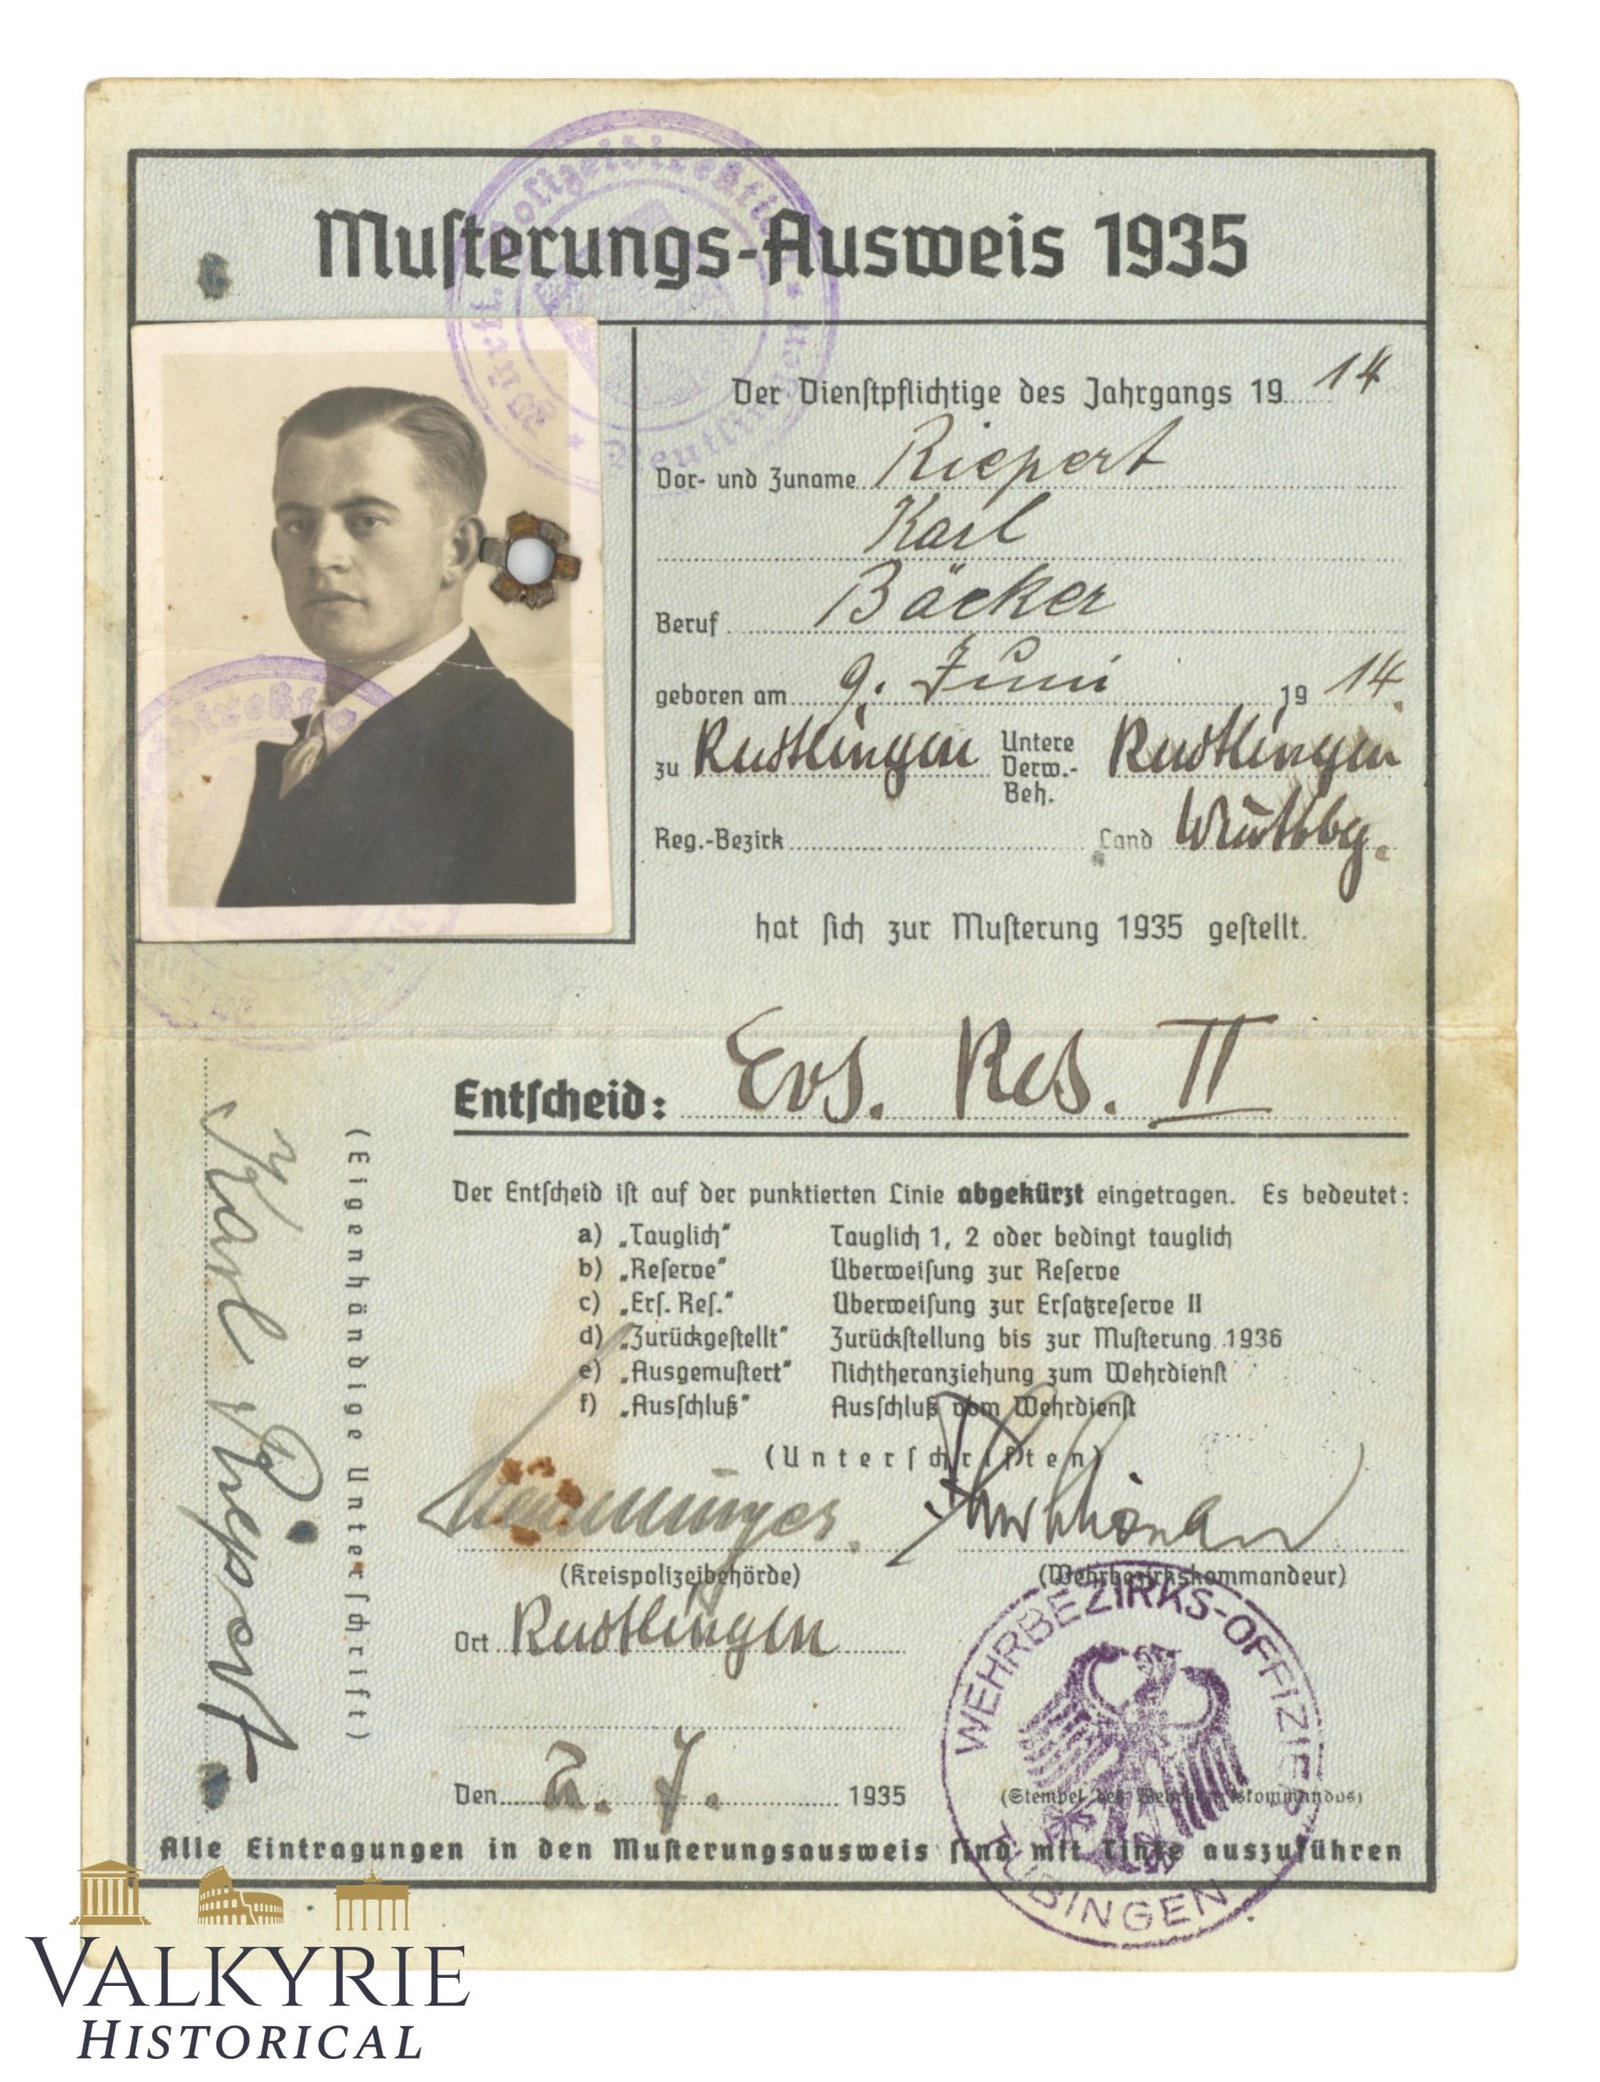 Musterungs-Ausweis 1935
Württ. Polizeidirektion
Reutlingen
Der Dienstpflichtige des Jahrgangs 19 14
Vor- und Zuname Riepert
Karl
Beruf Bäcker
geboren am 9. Juni 19 14.
zu Reutlingen Untere Verw.-Beh. Reutlingen
Reg.-Bezirk Land Württbg.
hat sich zur Musterung 1935 gestellt.
Entscheid: Ers. Res. II
Der Entscheid ist auf der punktierten Linie abgekürzt eingetragen. Es bedeutet:
a) „Tauglich" Tauglich 1, 2 oder bedingt tauglich
b) „Reserve" Überweisung zur Reserve
c) „Ers. Res." Überweisung zur Ersatzreserve II
d) „Zurückgestellt" Zurückstellung bis zur Musterung 1936
e) „Ausgemustert" Nichtheranziehung zum Wehrdienst
f) „Ausschluß" Ausschluß vom Wehrdienst
(Unterschriften)
(Kreispolizeibehörde) (Wehrbezirkskommandeur)
Ort Reutlingen
Den 2. 7. 1935
(Stempel des Wehrbezirkskommandos)
WEHRBEZIRKS-OFFIZIER
TÜBINGEN
Karl Riepert
(Eigenhändige Unterschrift)
Alle Eintragungen in den Musterungsausweis sind mit Tinte auszuführen
VALKYRIE
HISTORICAL